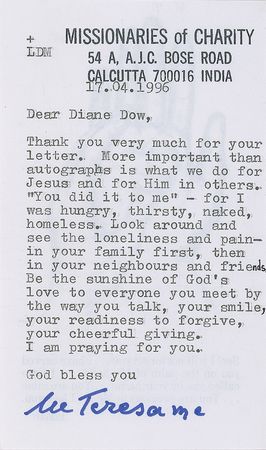 + MISSIONARIES of CHARITY
LDM
54 A, A.J.C. BOSE ROAD
CALCUTTA 700016 INDIA
17.04.1996
Dear Diane Dow,
Thank you very much for your
letter. More important than
autographs is what we do for
Jesus and for Him in others.
"You did it to me" - for I
was hungry, thirsty, naked,
homeless. Look around and
see the loneliness and pain-
in your family first, then
in your neighbours and friends
Be the sunshine of God's
love to everyone you meet by
the way you talk, your smile,
your readiness to forgive,
your cheerful giving.
I am praying for you.
God bless you
lle Teresa mc